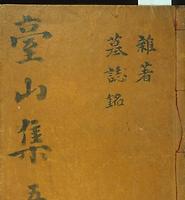 雜著
墓誌銘
臺山集 五